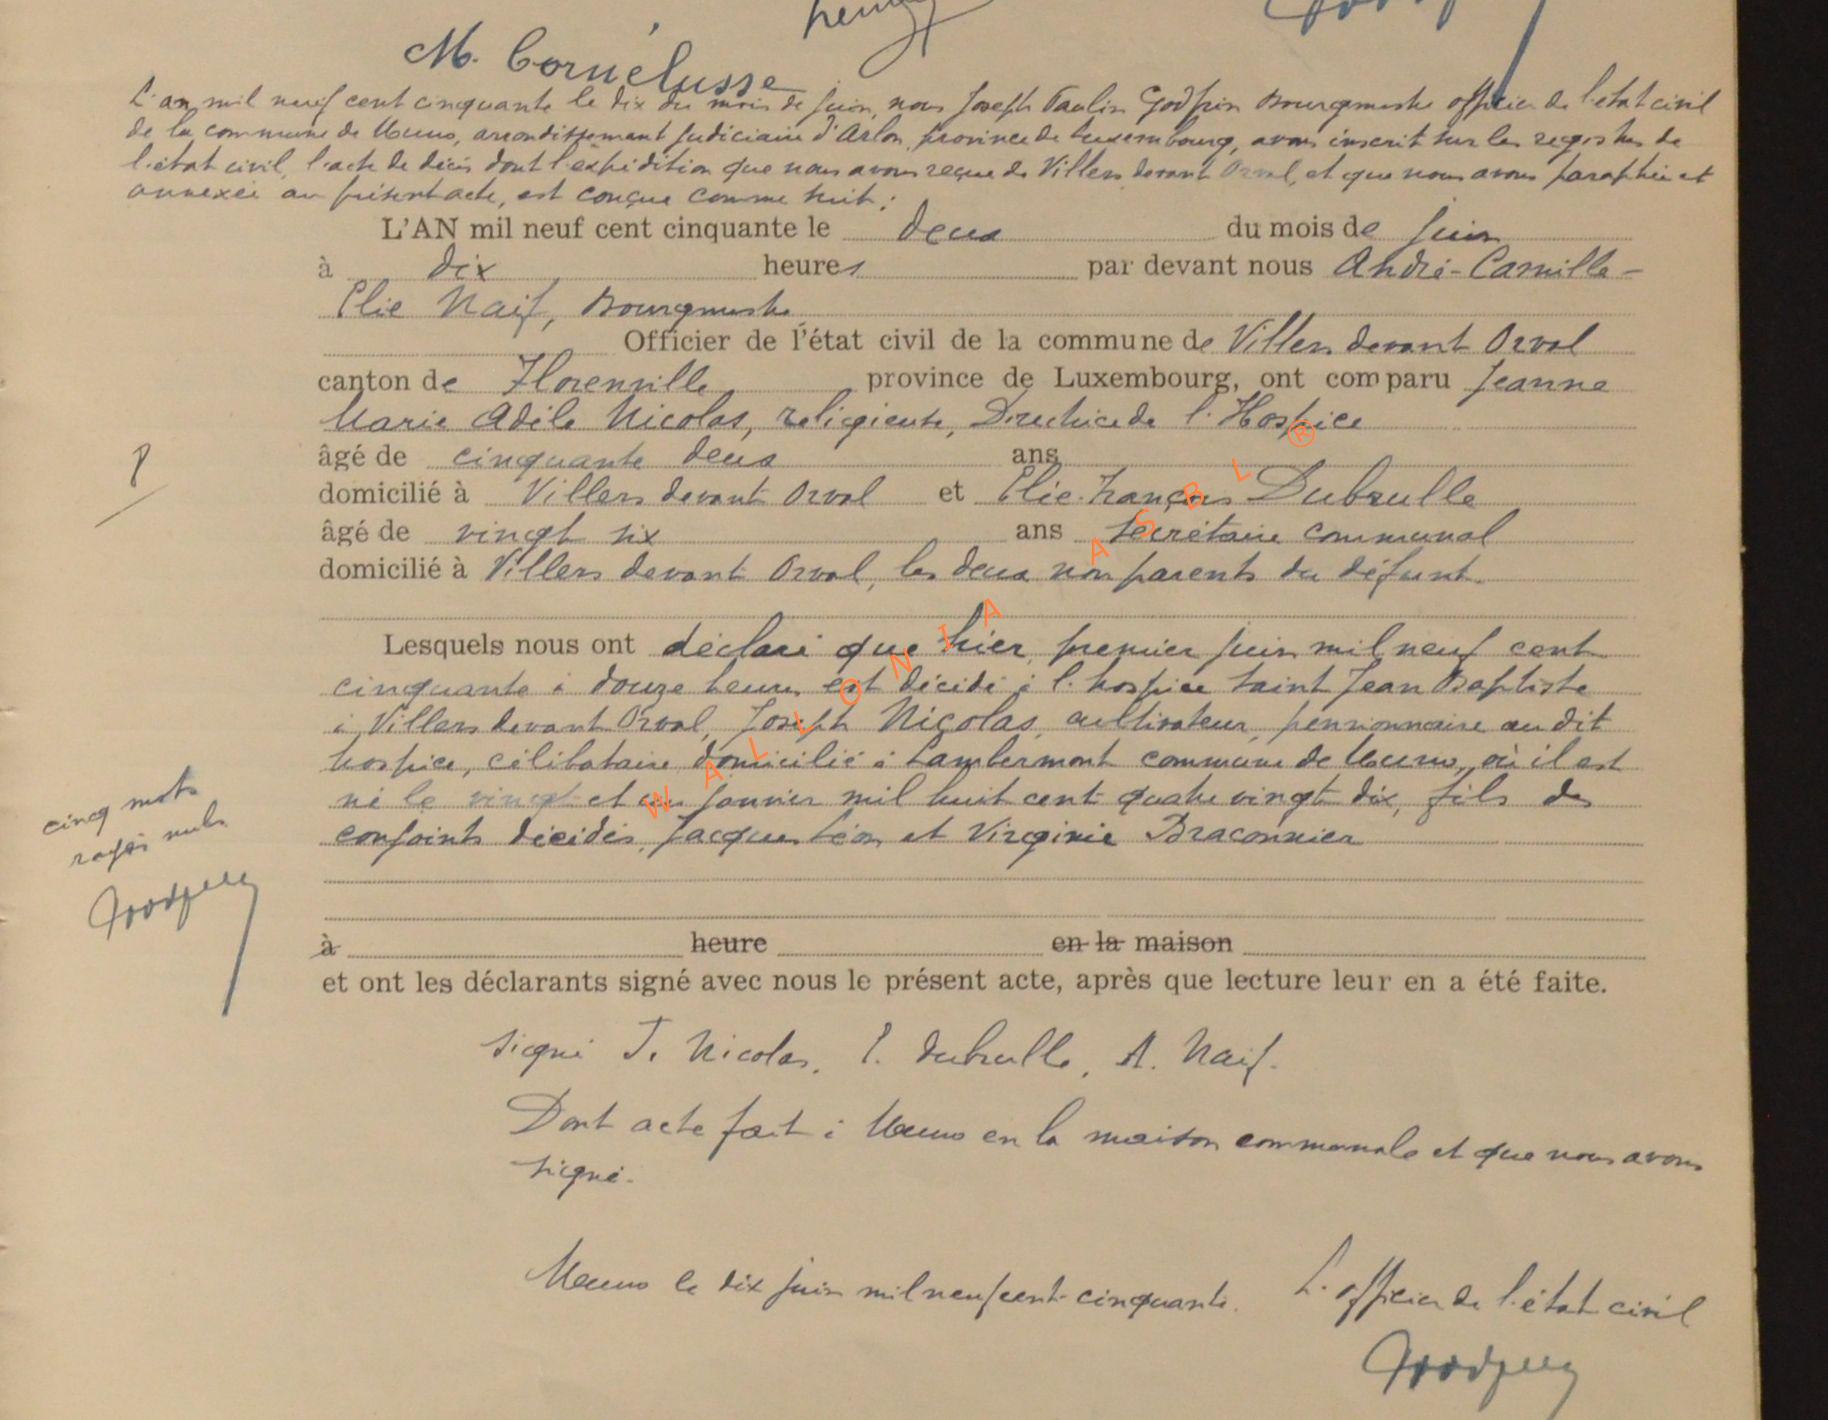 M. Cornélusse
L'an mil neuf cent cinquante le dix du mois de juin, nous Joseph Paulin Godfrin Bourgmestre officier de l'état civil
de la commune de Muno, arrondissement judiciaire d'Arlon, province de Luxembourg, avons inscrit sur les registres de
l'état civil, l'acte de décès dont l'expédition que nous avons reçue de Villers devant Orval, et que nous avons paraphée et
annexée au présent acte, est conçue comme suit :
L'AN mil neuf cent cinquante le deux du mois de juin
à dix heures par devant nous André-Camille-
Elie Naif, Bourgmestre
Officier de l'état civil de la commune de Villers devant Orval
canton de Florenville province de Luxembourg, ont comparu Jeanne
Marie Adèle Nicolas, religieuse, Directrice de l'Hospice
âgé de cinquante deux ans
domicilié à Villers devant Orval et Elie-François Dubrulle
âgé de vingt six ans secrétaire communal
domicilié à Villers devant Orval, les deux non parents du défunt.
Lesquels nous ont déclaré que hier, premier juin mil neuf cent
cinquante à douze heures est décédé à l'hospice Saint Jean Baptiste
à Villers devant Orval, Joseph Nicolas, cultivateur, pensionnaire au dit
hospice, célibataire domicilié à Lambermont commune de Muno, où il est
né le vingt et un janvier mil huit cent quatre vingt dix, fils des
conjoints décédés, Jacques Léon et Virginie Braconnier
cinq mots
rayés nuls
à heure en la maison
et ont les déclarants signé avec nous le présent acte, après que lecture leur en a été faite.
signé J. Nicolas, E. Dubrulle, A. Naif.
Dont acte fait à Muno en la maison communale et que nous avons
signé.
Muno le dix juin mil neuf cent cinquante. L'officier de l'état civil
WALLONIA ASBL ®